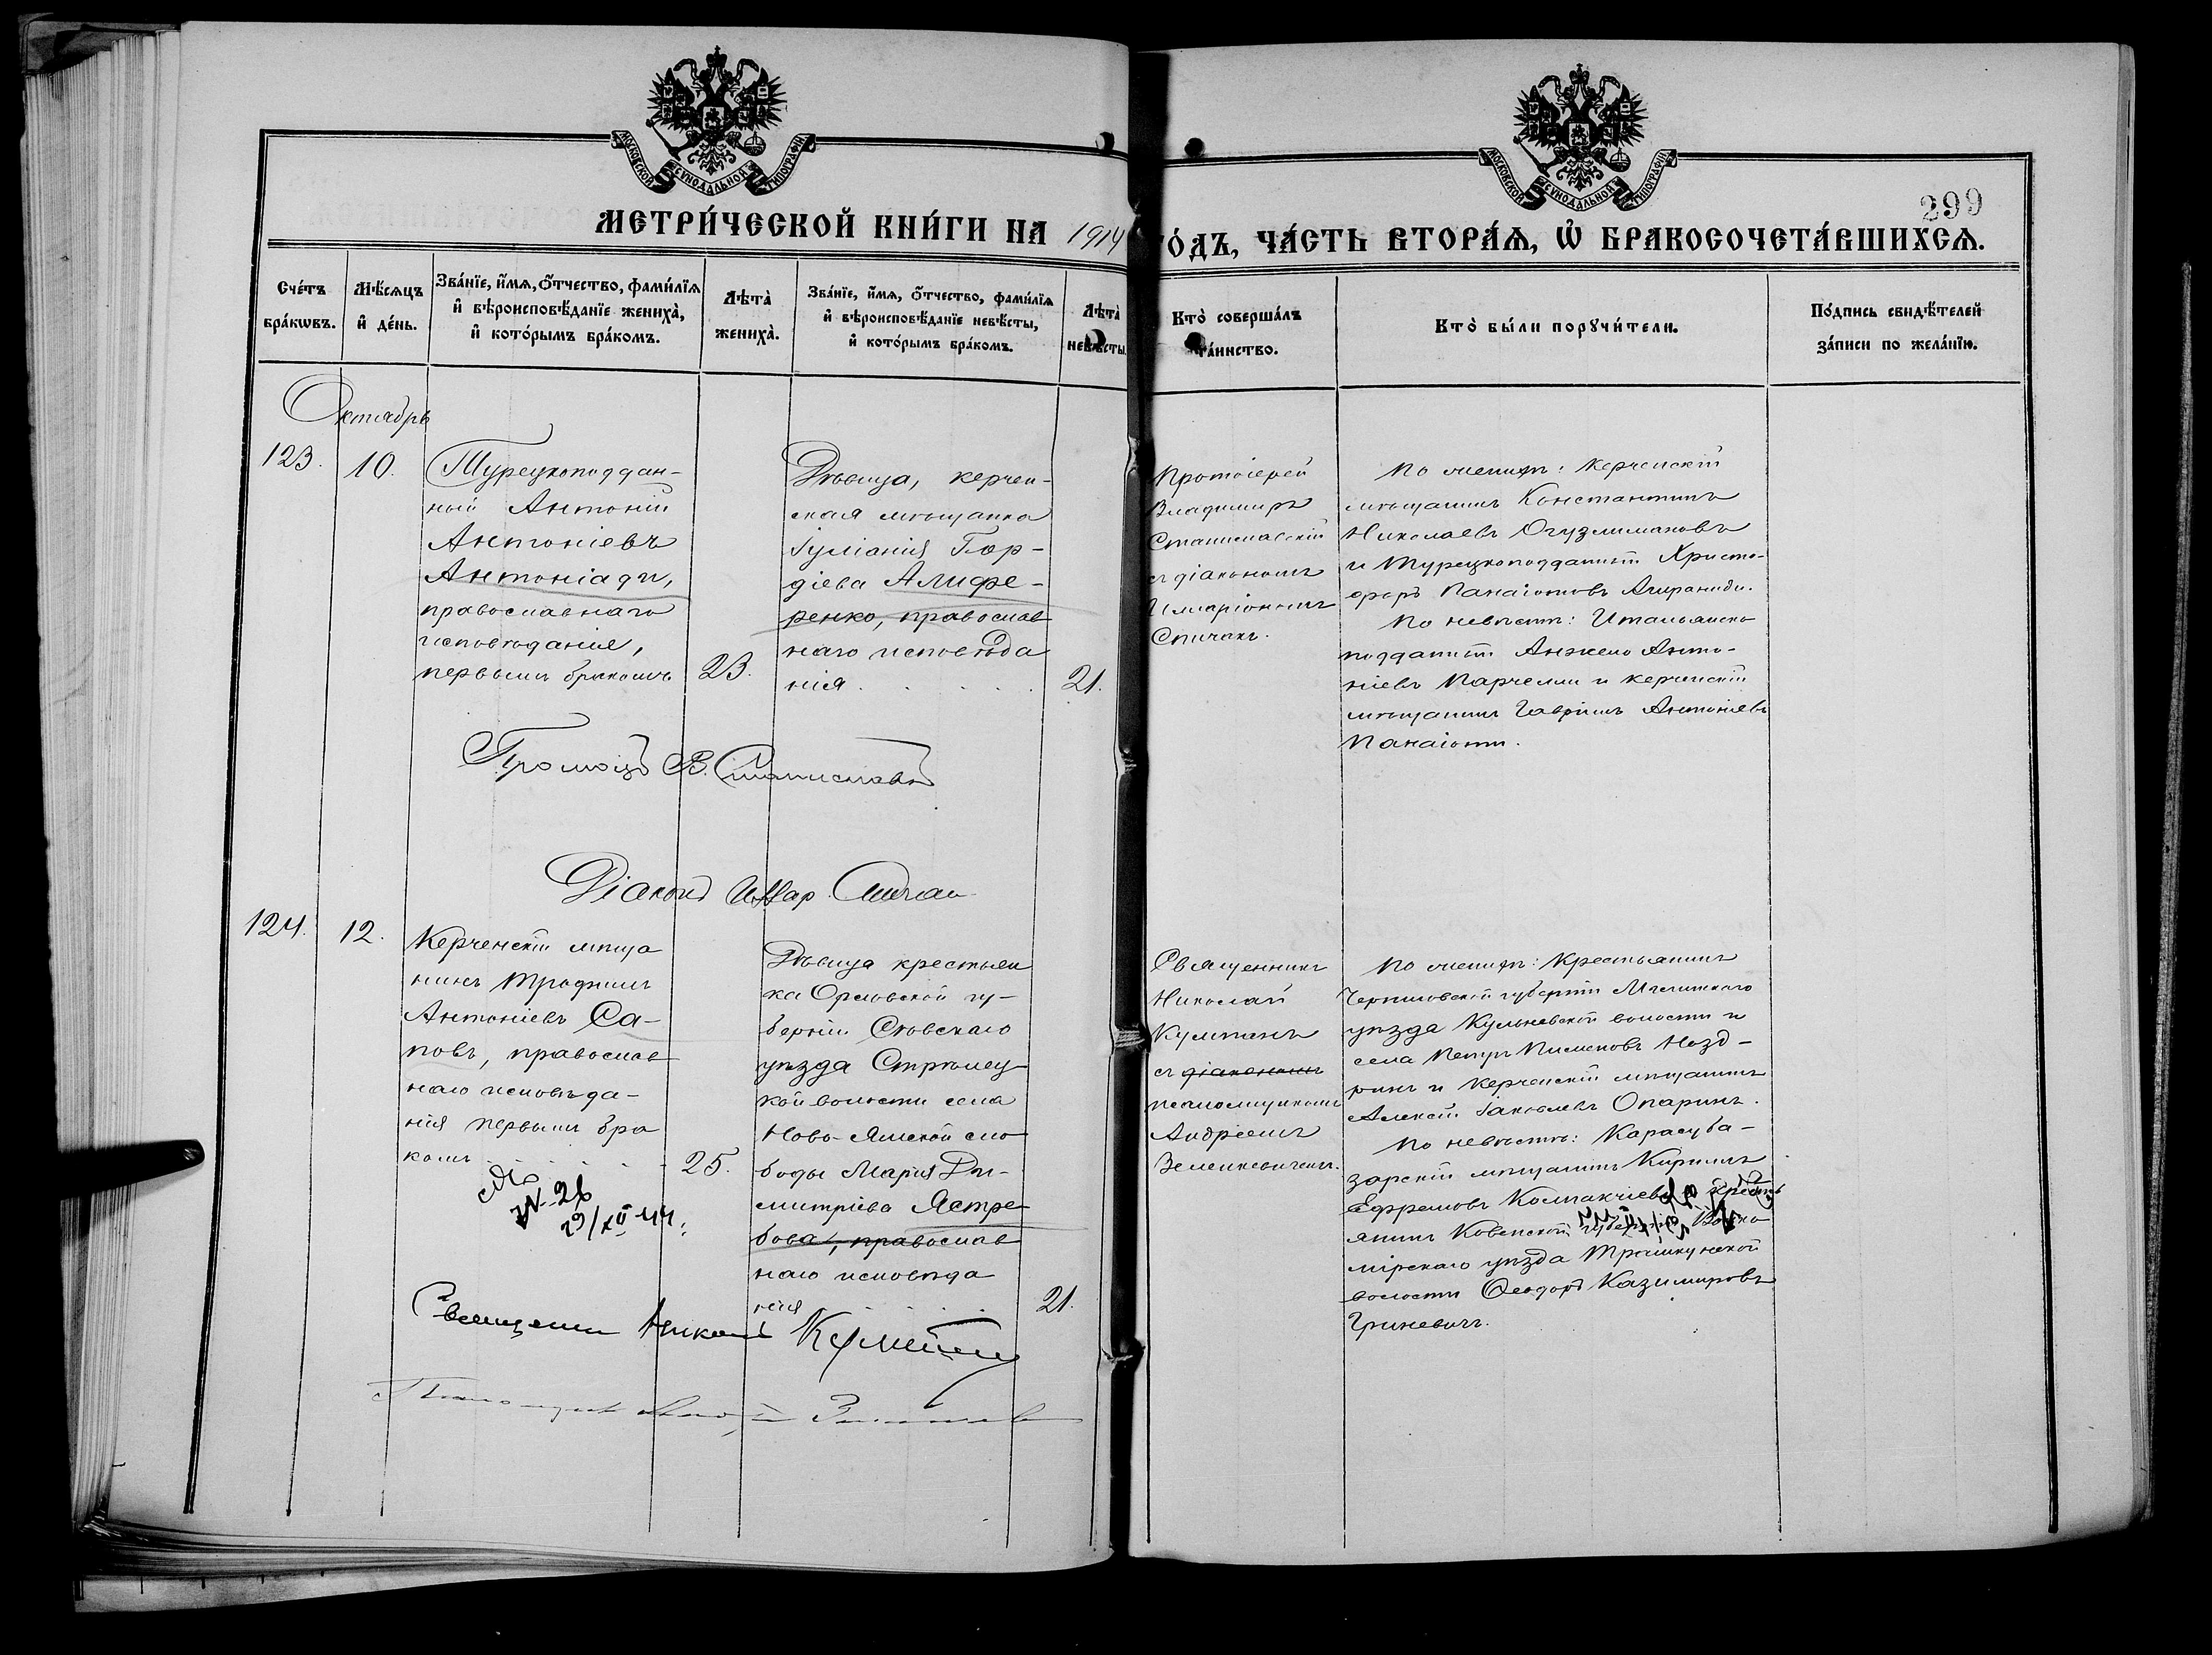 МОСКОВСКОЙ СѴНОДАЛЬНОЙ ТИПОГРАФІИ
МОСКОВСКОЙ СѴНОДАЛЬНОЙ ТИПОГРАФІИ
299
МЕТРИ́ЧЕСКОЙ КНИ́ГИ НА 1914
ГО́ДЪ, ЧА́СТЬ ВТОРА́Ѧ, Ѡ҆ БРАКОСОЧЕТА́ВШИХСѦ.
Сче́тъ
бра́кѡвъ.
Мѣ́сѧцъ
и҆ де́нь.
Зва́нїе, и҆́мѧ, ѻ҆́тчество, фами́лїѧ
и҆ вѣроисповѣ́данїе жениха̀,
и҆ кото́рымъ бра́комъ.
Лѣта̀
жениха̀.
Зва́нїе, и҆́мѧ, ѻ҆́тчество, фами́лїѧ
и҆ вѣроисповѣ́данїе невѣ́сты,
и҆ кото́рымъ бра́комъ.
Лѣта̀
невѣ́сты.
Кто̀ соверша́лъ
та́инство.
Кто̀ бы́ли порꙋчи́тели.
По́дпись свидѣ́телей
за́писи по жела́нїю.
Октябрь
123.
10.
Турецкоподдан-
ный Антоній
Антоніевъ
Антоніади,
православнаго
исповѣданія,
первымъ бракомъ
23.
Дѣвица, керчен-
ская мѣщанка
Іуліанія Гор-
діева Алифе-
ренко, православ
наго исповѣда
нія . . . . .
21.
Протоіерей
Владиміръ
Станиславскій
съ діакономъ
Иларіономъ
Спичакъ.
По женихѣ: Керченскій
мѣщанинъ Константинъ
Николаевъ Огузлимановъ
и Турецкоподданный Христо-
форъ Панаіотовъ Амираниди.
По невѣстѣ: Итальянско
подданный Анжело Анто-
ніевъ Парчелли и керченскій
мѣщанинъ Гавріилъ Антоніевъ
Панаіоти.
В. Станиславскій
Діаконъ Илар. Спичакъ
124.
12.
Керченскій мѣща
нинъ Трофимъ
Антоніевъ Са-
повъ, православ
наго исповѣда-
нія первымъ бра
комъ . . . . .
25.
N-26
29/XII 44.
Дѣвица крестьян
ка Орловской гу-
берніи Сѣвскаго
уѣзда Стрѣлец-
кой волости села
Ново-Ямской сло
боды Марія Ди-
митріева Ястре
бова, православ
наго исповѣда
нія . . . .
21.
Священникъ
Николай
Кумпанъ
съ діакономъ
псаломщикомъ
Андреемъ
Зеленкевичемъ.
По женихѣ: Крестьянинъ
Черниговской губерніи Мглинскаго
уѣзда Кульневской волости и
села Петръ Пименовъ Позд-
някъ и керченскій мѣщанинъ
Алексѣй Іаковлевъ Опаринъ.
По невѣстѣ: Карасуба-
зарскій мѣщанинъ Кириллъ
Ефремовъ Колпакчіевъ и кресть
янинъ Ковенской губерніи Вилько
мірскаго уѣзда Трашкунской
волости Ѳеодоръ Казимировъ
Гриневичъ.
Священникъ Николай Кумпанъ